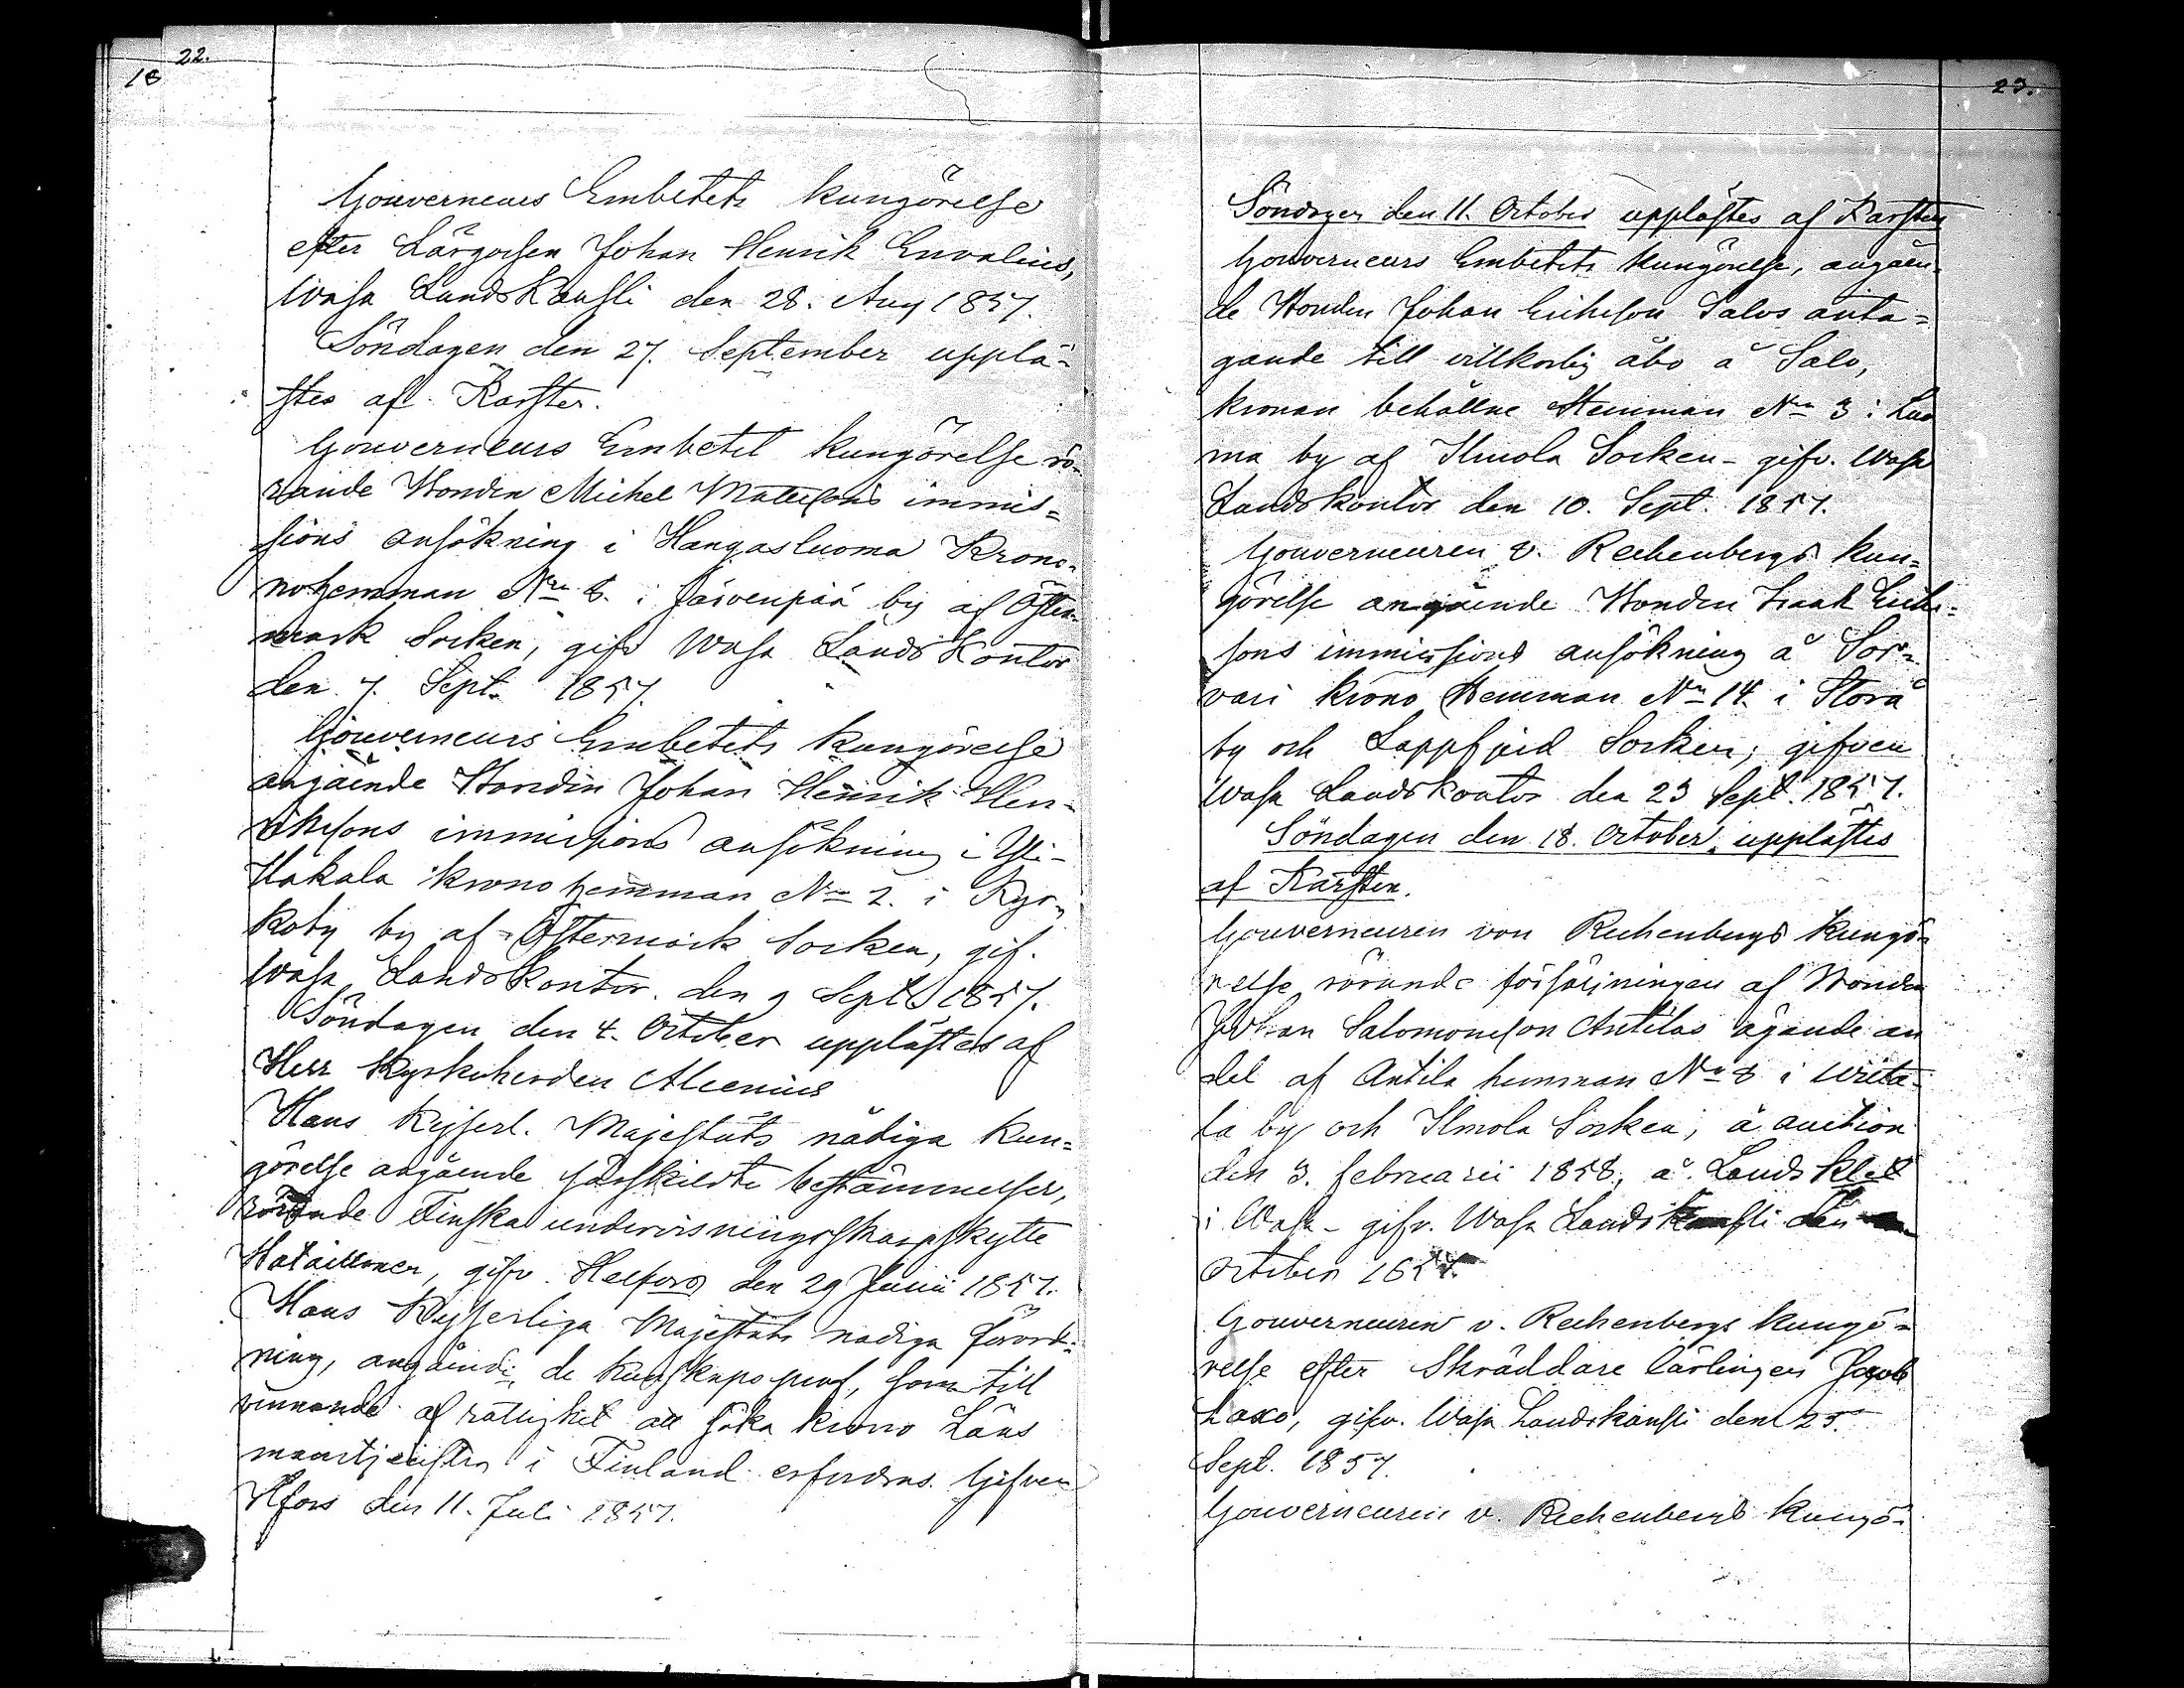 22.
18
Gouverneurs Embetets kungörelse
efter Lärgossen Johan Henrik Envalius,
Wasa LandsKansli den 28. Aug 1857.
Söndagen den 27. September upplä-
stes af Karsten.
Gouverneurs Embetet kungörelse rö-
rande Bonden Michel Mattssons immis=
sions ansökning i Hangasluoma Krono-
nohemman Nro 8. i Järvenpää by af Öster-
mark Socken, gifv Wasa LandsKontor
den 7. Sept. 1857.
Gouverneurs Embetets kungörelse
angående Bonden Johan Henrik Hen-
rikssons immissions ansökning i Yli-
Hakala krono hemman No 2. i Kyr-
koby by af Östermark Socken, gif.
Wasa LandsKontor. den 9 Sept 1857.
Söndagen den 4. October upplästes af
Herr Kyrkoherden Alcenius
Hans Kejserl. Majestäts nådiga kun=
görelse angående särskildte bestämmelser,
rörande Finska undervisningsskarpskytte
Bataillonen, gifv. Helsfors den 29 Junii 1857.
Hans Kejserliga Majestäts nådiga förord-
ning, angående de kunskapsprof, som till
vinnande af rättighet att söka krono Läns
manstjensten i Finland erfordras. Gifven
Hfors den 11. Juli 1857.
23.
Söndagen den 11. October upplästes af Karsten
Gouverneurs Embetets kungörelse, angåen-
de Bonden Johan Erikssons Salos anta=
gande till villkorlig åbo å Salo,
kronan behållne Hemman No 3 i Luo
ma by af Ilmola Socken - gifv. Wasa
Landskontor den 10. Sept. 1857.
Gouverneuren v. Rechenbergs kun=
görelse angående Bonden Isaak Erik-
sons immissions ansökning å Sor-
vari krono Hemman No 14. i Storå
by och Lappfjerd Socken; gifven
Wasa Landskontor den 23 Sept. 1857.
Söndagen den 18. October. upplästes
af Karsten.
Gouverneuren von Rechenbergs kungö-
relse rörande försäljningen af Bonden
Johan Salomonsson Antilas ägande an
del af Antila hemman No 8 i Wiita-
la by och Ilmola Socken; å auction
den 3. februarii 1858, å Landskbl
i Wasa - gifv. Wasa Landskansli den
October 1857.
Gouverneuren v. Rechenbergs kungö=
relse efter Skräddare lärlingen Jacob
Laxo, gifv. Wasa Landskansli den 25.
Sept. 1857.
Gouverneuren v. Rechenbergs kungö-